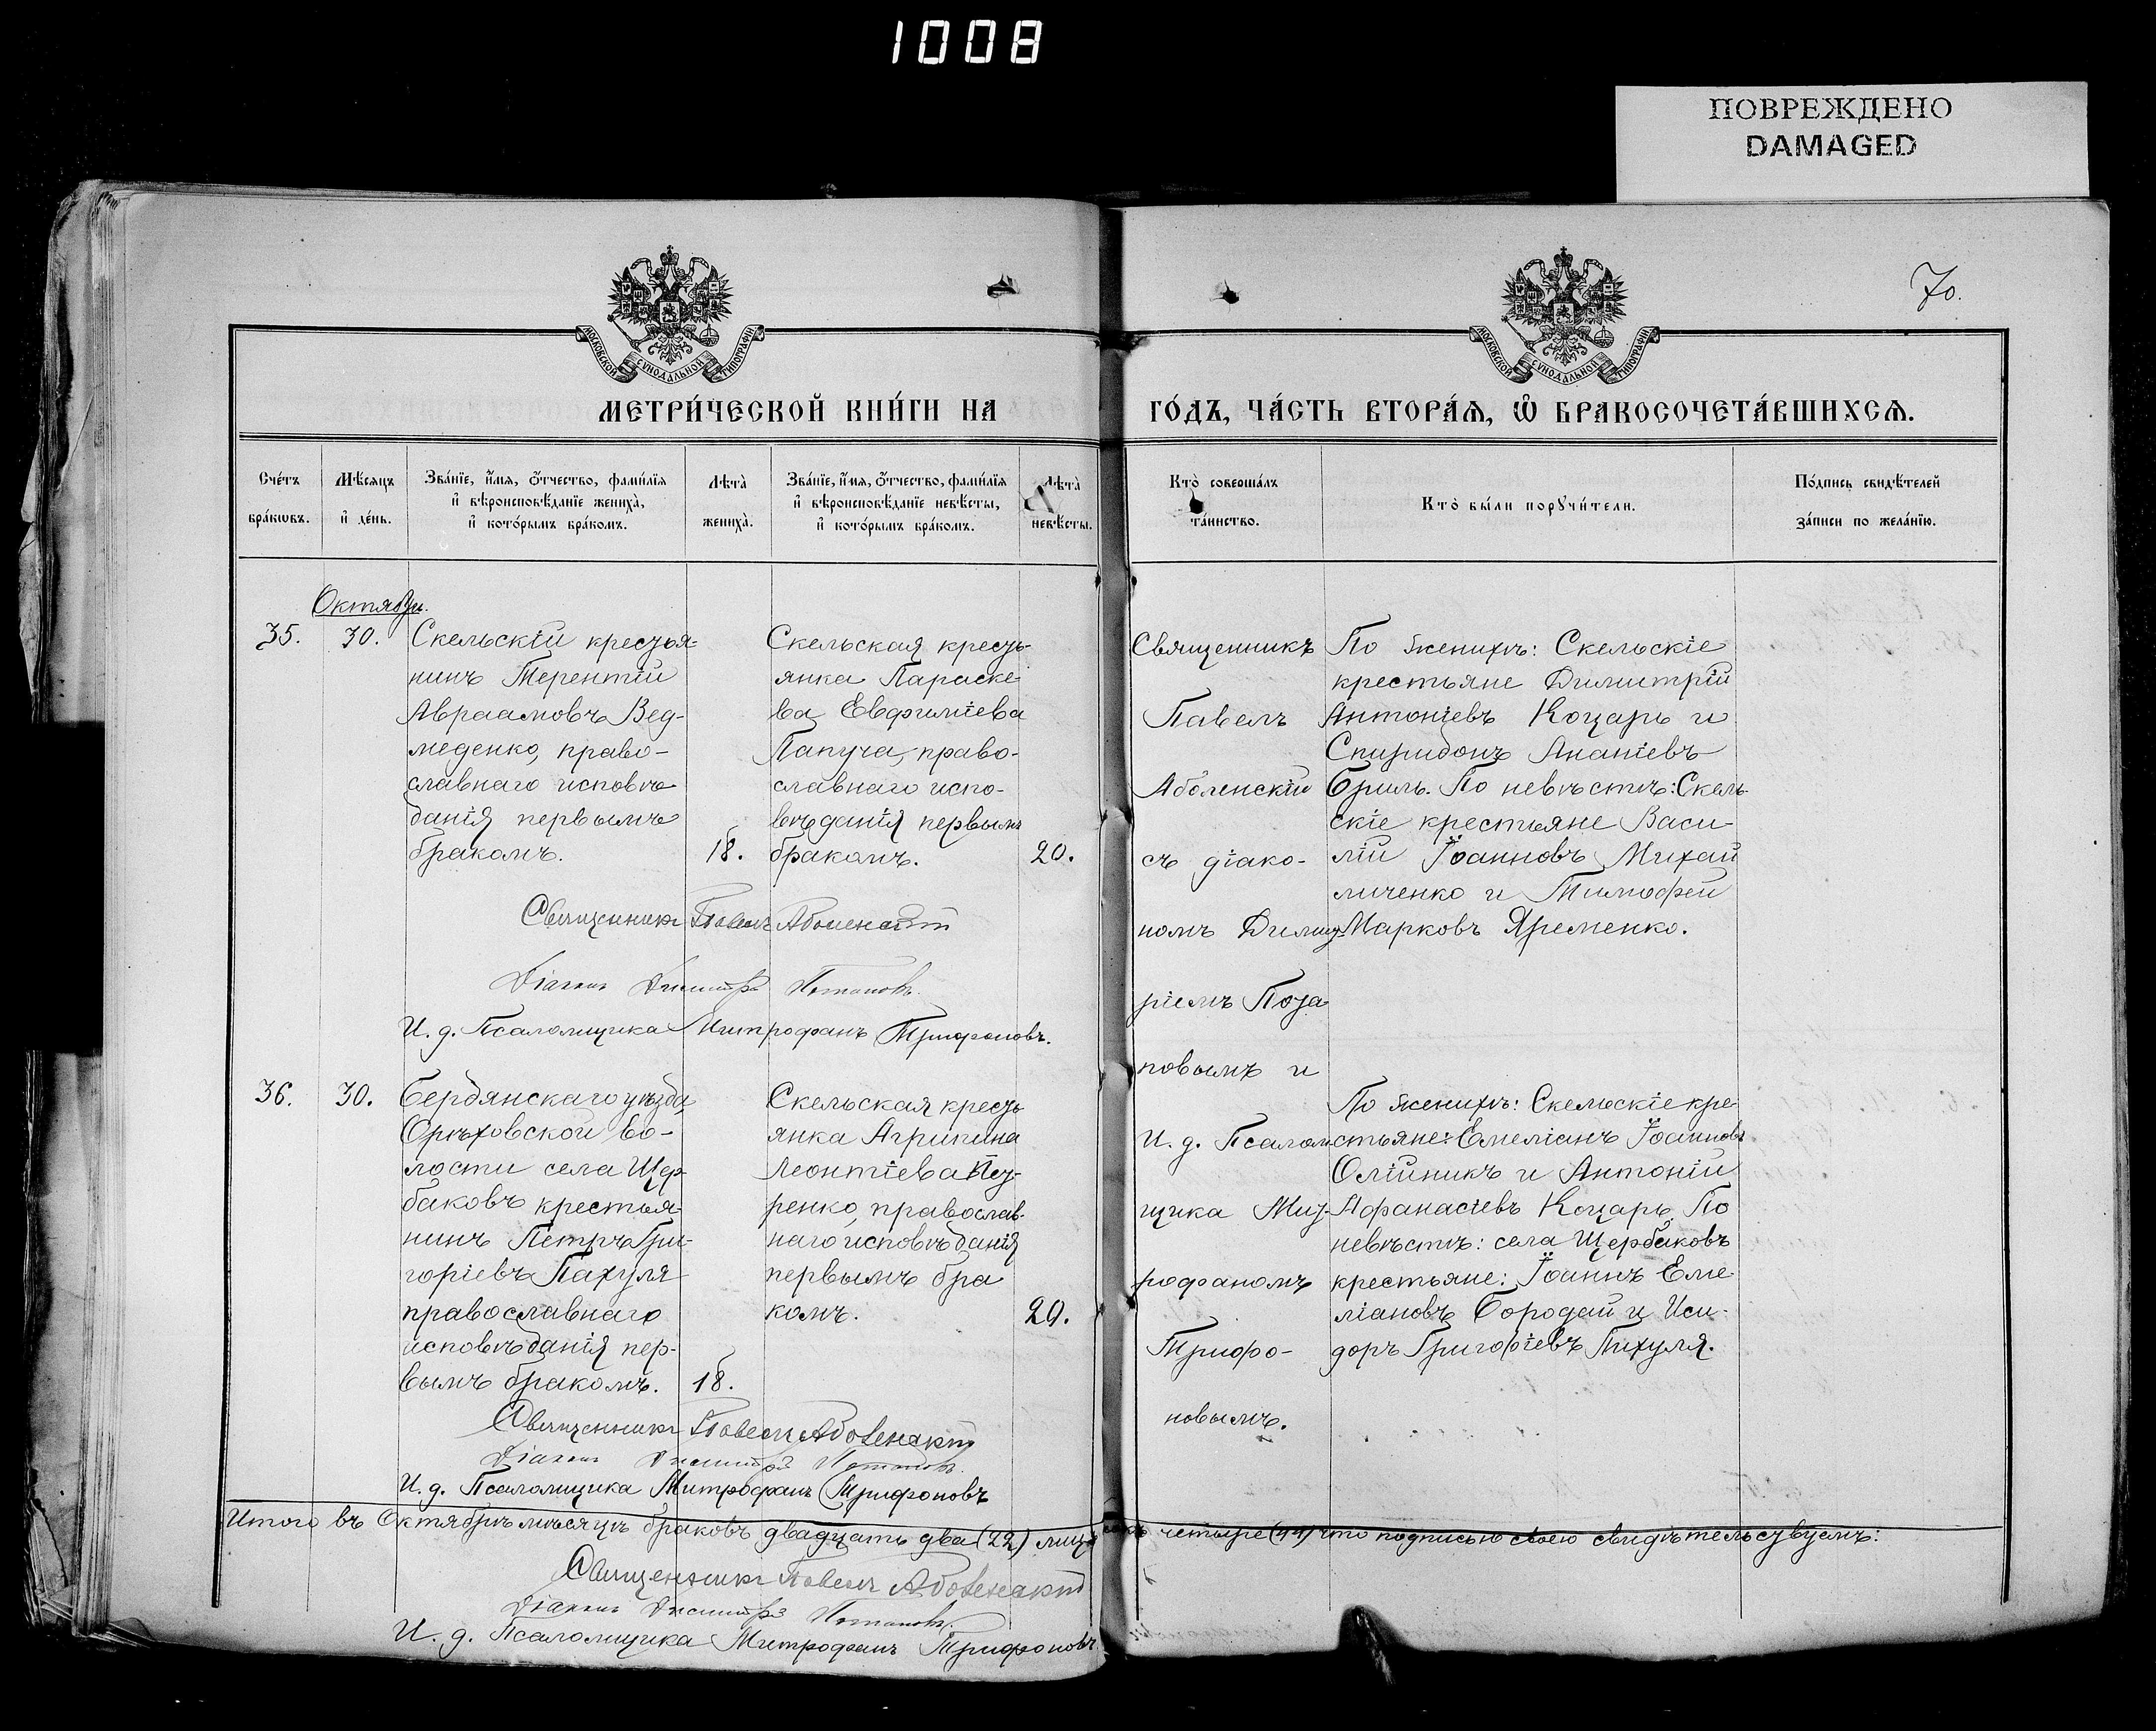 1008
ПОВРЕЖДЕНО
DAMAGED
70.
МОСКОВСКОЙ СѴНОДАЛЬНОЙ ТИПОГРАФІИ
МОСКОВСКОЙ СѴНОДАЛЬНОЙ ТИПОГРАФІИ
МЕТРИ́ЧЕСКОЙ КНИ́ГИ НА
ГО́ДЪ, ЧА́СТЬ ВТОРА́Ѧ, Ѡ҆ БРАКОСОЧЕТА́ВШИХСѦ.
Сче́тъ
бра́кѡвъ.
Мѣ́сяцъ
и҆ де́нь.
Зва́нїе, и҆́мя, ѻ҆́тчество, фами́лїя
и҆ вѣроисповѣ́данїе жениха̀,
и҆ кото́рымъ бра́комъ.
Лѣ́та̀
жениха̀.
Зва́нїе, и҆́мя, ѻ҆́тчество, фами́лїя
и҆ вѣроисповѣ́данїе невѣ́сты,
и҆ кото́рымъ бра́комъ.
Лѣ́та̀
невѣ́сты.
Кто̀ соверша́лъ
та́инство.
Кто̀ бы́ли порꙋчи́тели.
По́дпись свидѣ́телей
за́писи по жела́нїю.
Октябрь.
35.
30.
Скельскій крестья-
нинъ Терентій
Авраамовъ Вед-
меденко, право-
славнаго исповѣ
данія первымъ
бракомъ.
18.
Скельская кресть-
янка Параске
ва Евфиміева
Папуча, право-
славнаго испо-
вѣданія первымъ
бракомъ.
20.
Священникъ Павелъ Аболенскій
Діаконъ Димитрій Потаповъ.
И. д. Псаломщика Митрофанъ Трифоновъ.
Священникъ
Павелъ
Аболенскій
съ діако-
номъ Димит
ріемъ Пота
повымъ и
И. д. Псалом
щика Мит-
рофаномъ
Трифо-
новымъ.
По женихѣ: Скельскіе
крестьяне Димитрій
Антоніевъ Коцарь и
Спиридонъ Ананіевъ
Бриль. По невѣстѣ: Скель-
скіе крестьяне Васи-
лій Іоанновъ Михай
личенко и Тимофей
Марковъ Яременко.
36.
30.
Бердянскаго уѣзда,
Орѣховской во-
лости села Щер-
баковъ крестья-
нинъ Петръ Гри-
горіевъ Пахуля
православнаго
исповѣданія пер-
вымъ бракомъ.
18.
Скельская кресть
янка Агрипина
Леонтіева
ренко, православ-
наго исповѣданія
первымъ бра
комъ.
20.
По женихѣ: Скельскіе кре-
стьяне: Емеліанъ Іоанновъ
Олійникъ и Антоній
Афанасіевъ Коцарь. По
невѣстѣ: села Щербаковъ
крестьяне: Іоаннъ Еме-
ліановъ Бородай и Иси-
доръ Григоріевъ Пихуля.
Священникъ Павелъ Аболенскій
Діаконъ Димитрій Потаповъ.
И. д. Псаломщика Митрофанъ Трифоновъ
Итого въ Октябрѣ мѣсяцѣ браковъ двадцать два (22) лицъ четыре (44) что подписью своею свидѣтельствуемъ:
Священникъ Павелъ Аболенскій
Діаконъ Димитрій Потаповъ.
И. д. Псаломщика Митрофанъ Трифоновъ